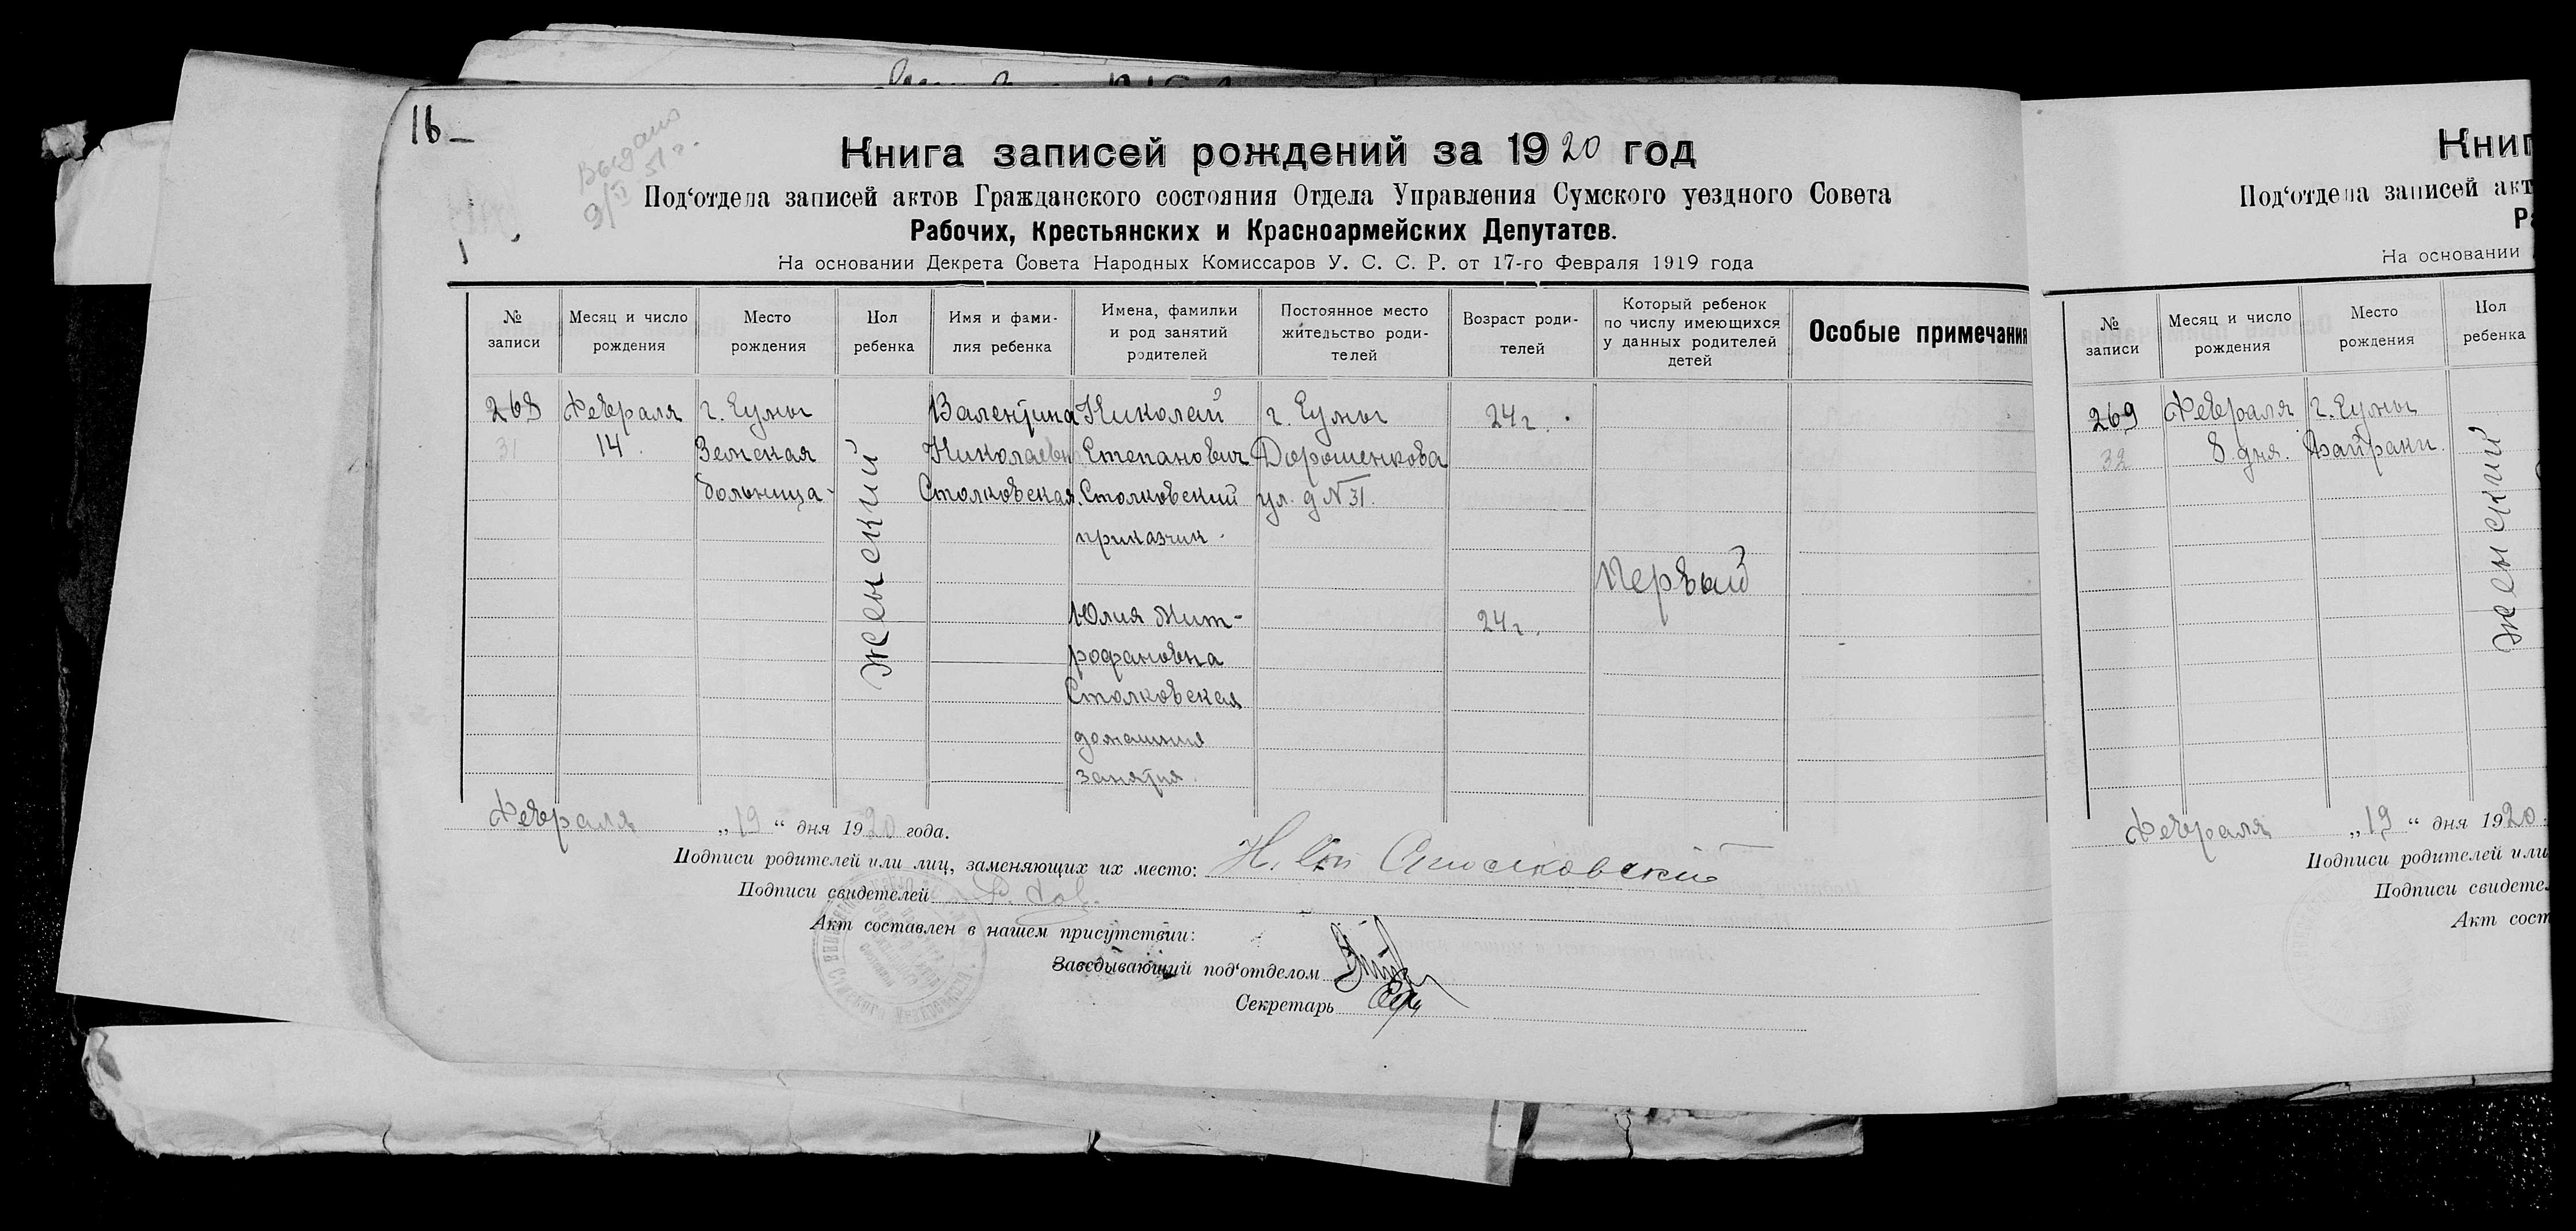 16
Выдано
9/I 51 г.
Книга записей рождений за 1920 год
Под‘отдела записей актов Гражданского состояния Отдела Управления Сумского уездного Совета
Рабочих, Крестьянских и Красноармейских Депутатов.
На основании Декрета Совета Народных Комиссаров У. С. С. Р. от 17-го Февраля 1919 года
№ записи
Месяц и число рождения
Место рождения
Пол ребенка
Имя и фами-
лия ребенка
Имена, фамилии
и род занятий
родителей
Постоянное место
жительство роди-
телей
Возраст роди-
телей
Который ребенок
по числу имеющихся
у данных родителей
детей
Особые примечания
268
31
Февраля
14
г. Сумы
Земская
больница
женский
Валентина
Николаевн
Столковская
Николай
Степанович
Столковский
приказчик
Юлия Мит-
рофановна
Столковская
домашния
занятия
г. Сумы
Дорошенкова
ул. д № 31.
24 г.
24 г.
Первый
Февраля „19“ дня 1920 года.
Подписи родителей или лиц, заменяющих их место: Н. Столковский
Подписи свидетелей
Акт составлен в нашем присутствии:
Заведывающий под‘отделом
Секретарь
Книг
Под‘отдела записей акт
Ра
На основании
№ записи
Месяц и число рождения
Место рождения
Пол ребенка
269
32
Февраля
8 дня.
г. Сумы
женский
Февраля „19“ дня 1920
Подписи родителей или
Подписи свидете
Акт сост